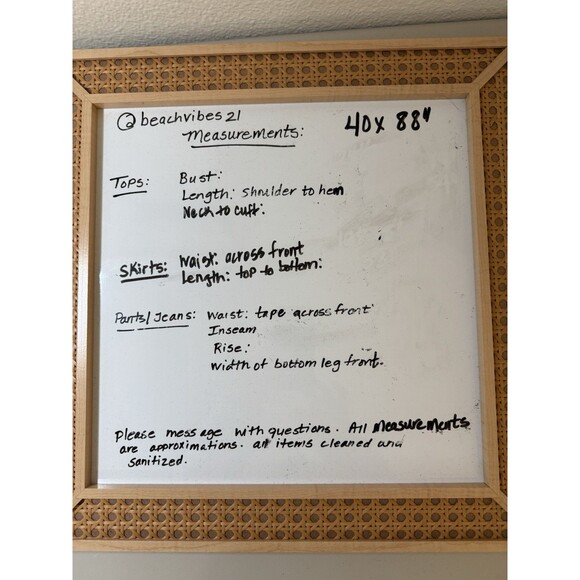 @beachvibes21
Measurements:
40x 88"
Tops:
Bust:
Length: Shoulder to hem
Neck to cuff:
Skirts:
Waist: across front
Length: top to bottom:
Pants/Jeans:
Waist: tape across front
Inseam
Rise:
Width of bottom leg front.
Please message with questions. All measurements
are approximations. all items cleaned and
sanitized.